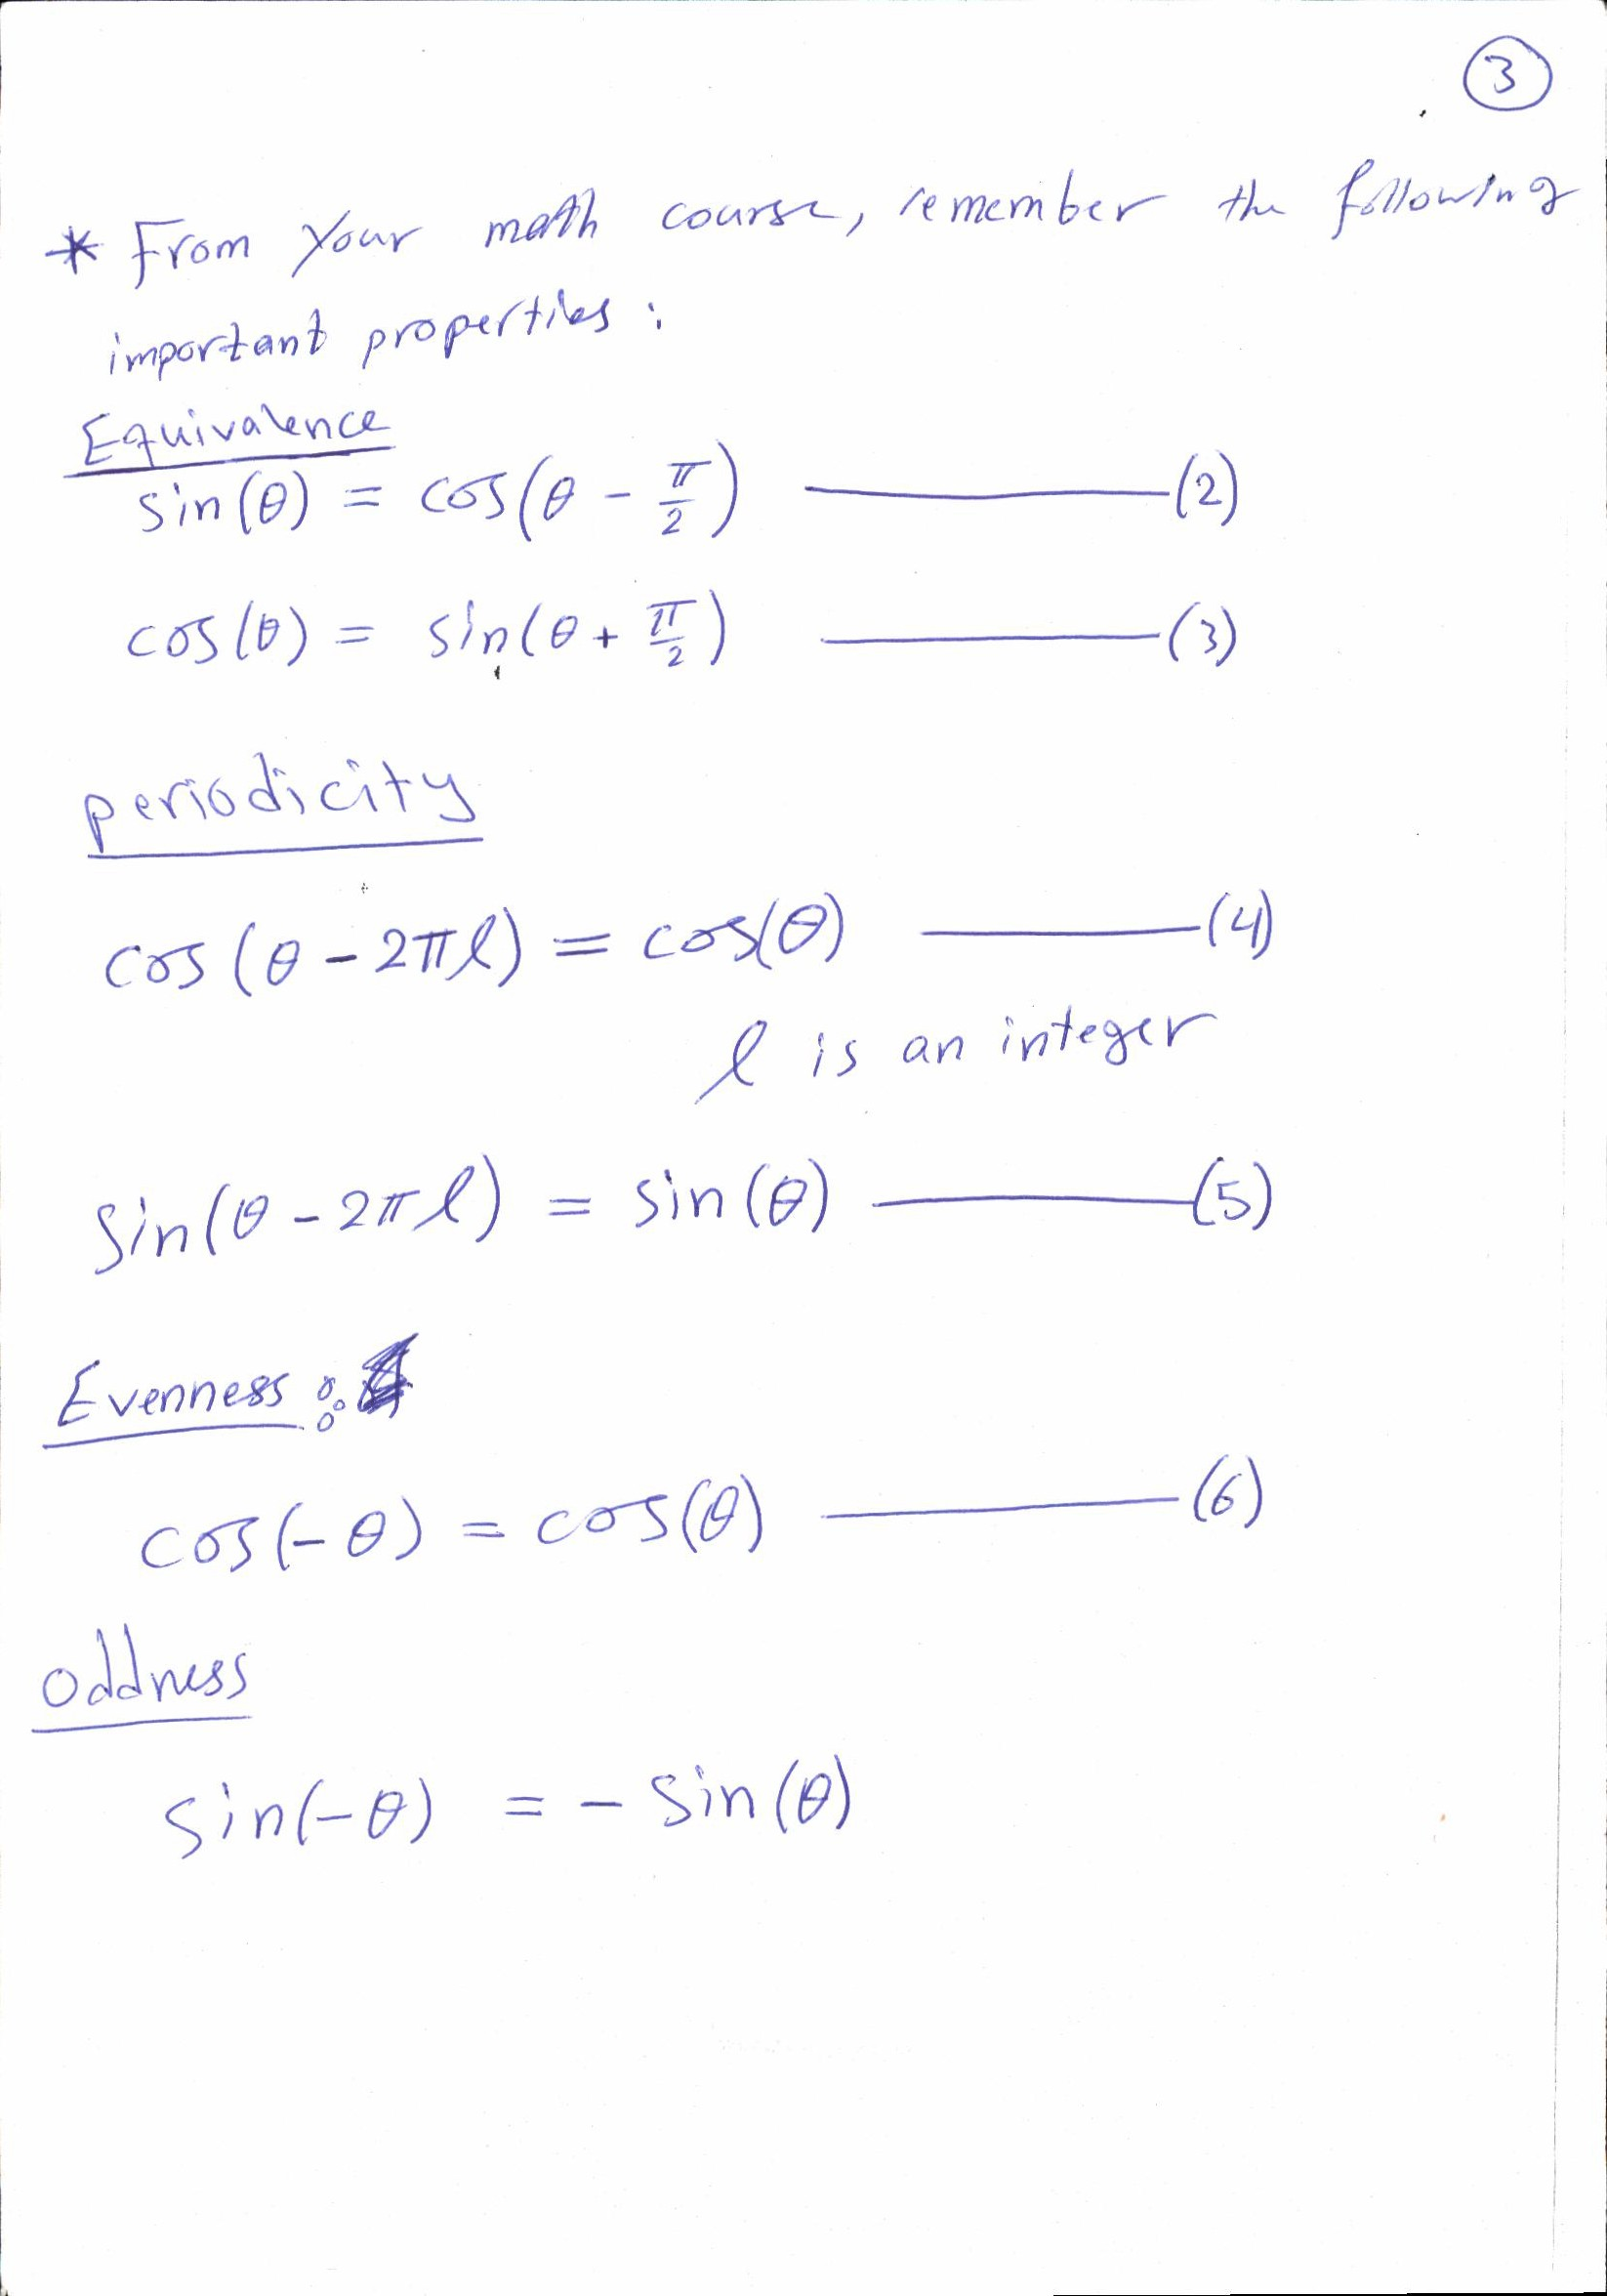 3
* From Your math course, remember the following
important properties :
Equivalence
sin(θ) = cos(θ - π/2) ———(2)
cos(θ) = sin(θ + π/2) ———(3)
periodicity
cos(θ - 2πl) = cos(θ) ———(4)
l is an integer
sin(θ - 2πl) = sin(θ) ———(5)
Evenness :
cos(-θ) = cos(θ) ———(6)
oddness
sin(-θ) = - sin(θ)